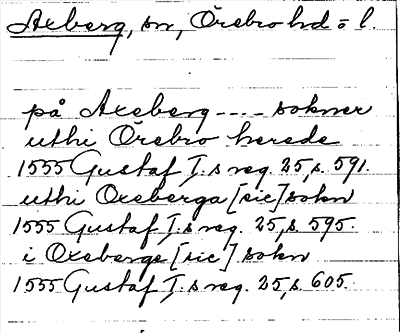 Axberg, sn, Örebro hd o l.
på Axeberg ---- sokner
uthi Örebro herede
1555 Gustaf I.s reg. 25, s. 591.
uthi Oxeberga [sic] sokn
1555 Gustaf I.s reg. 25, s. 595.
i Oxeberga [sic] sokn
1555 Gustaf I.s reg. 25, s. 605.